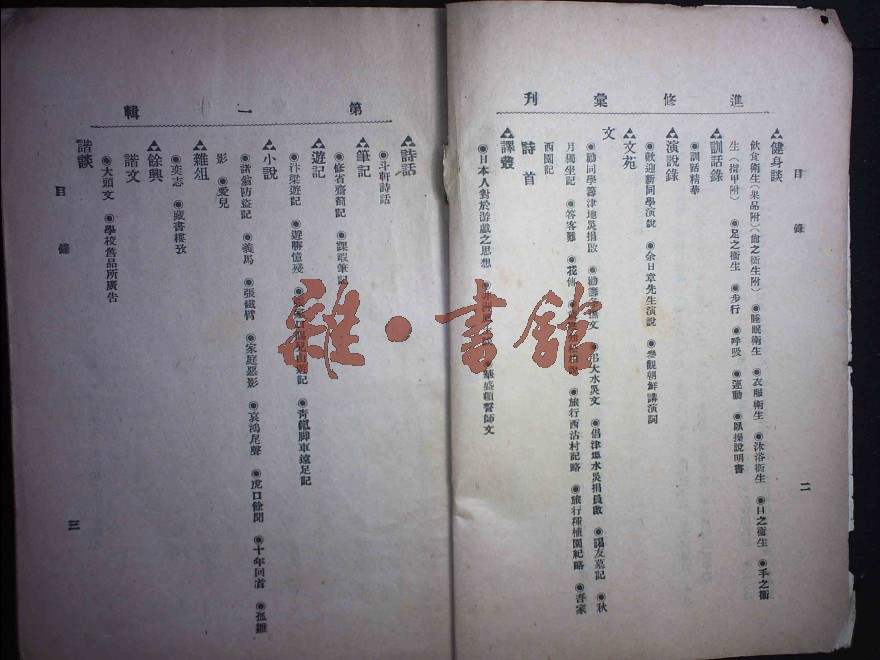 進修彙刊
目錄
二
健身談
飲食衛生(果品附)(齒之衛生附) ◉睡眠衛生 ◉衣服衛生 ◉沐浴衛生 ◉目之衛生 ◉手之衛
生(指甲附) ◉足之衛生 ◉步行 ◉呼吸 ◉運動 ◉臥操說明書
訓話錄
◉訓話精華
演說錄
◉歡迎新同學演說 ◉余日章先生演說 ◉參觀朝鮮講演詞
文苑
文
◉勸同學籌津地災捐啟 ◉弔大水災文 ◉倡津埠水災捐員啟 ◉謁友墓記 ◉秋
月獨坐記 ◉答客難 ◉花傳 ◉旅行西沽村記略 ◉旅行種植園紀略 ◉吾家
西園記
詩 首
譯叢
◉日本人對於游戲之思想 ◉華盛頓誓師文
雜·書館
第一輯
詩話
◉斗軒詩話
筆記
◉修省齋劄記 ◉課暇筆記
遊記
◉汴梁遊記 ◉遊勝憶殘 山遊記 ◉青龍脚車遠足記
小說
◉諸翁防盜記 ◉義馬 ◉張鐵臂 ◉家庭惡影 ◉哀鴻尾聲 ◉虎口餘聞 ◉十年回首 ◉孤雛
影 ◉愛兒
雜俎
◉奕志 ◉藏書樓攷
餘興
諧文
◉大頭文 ◉學校舊品所廣告
諧談
目錄
三